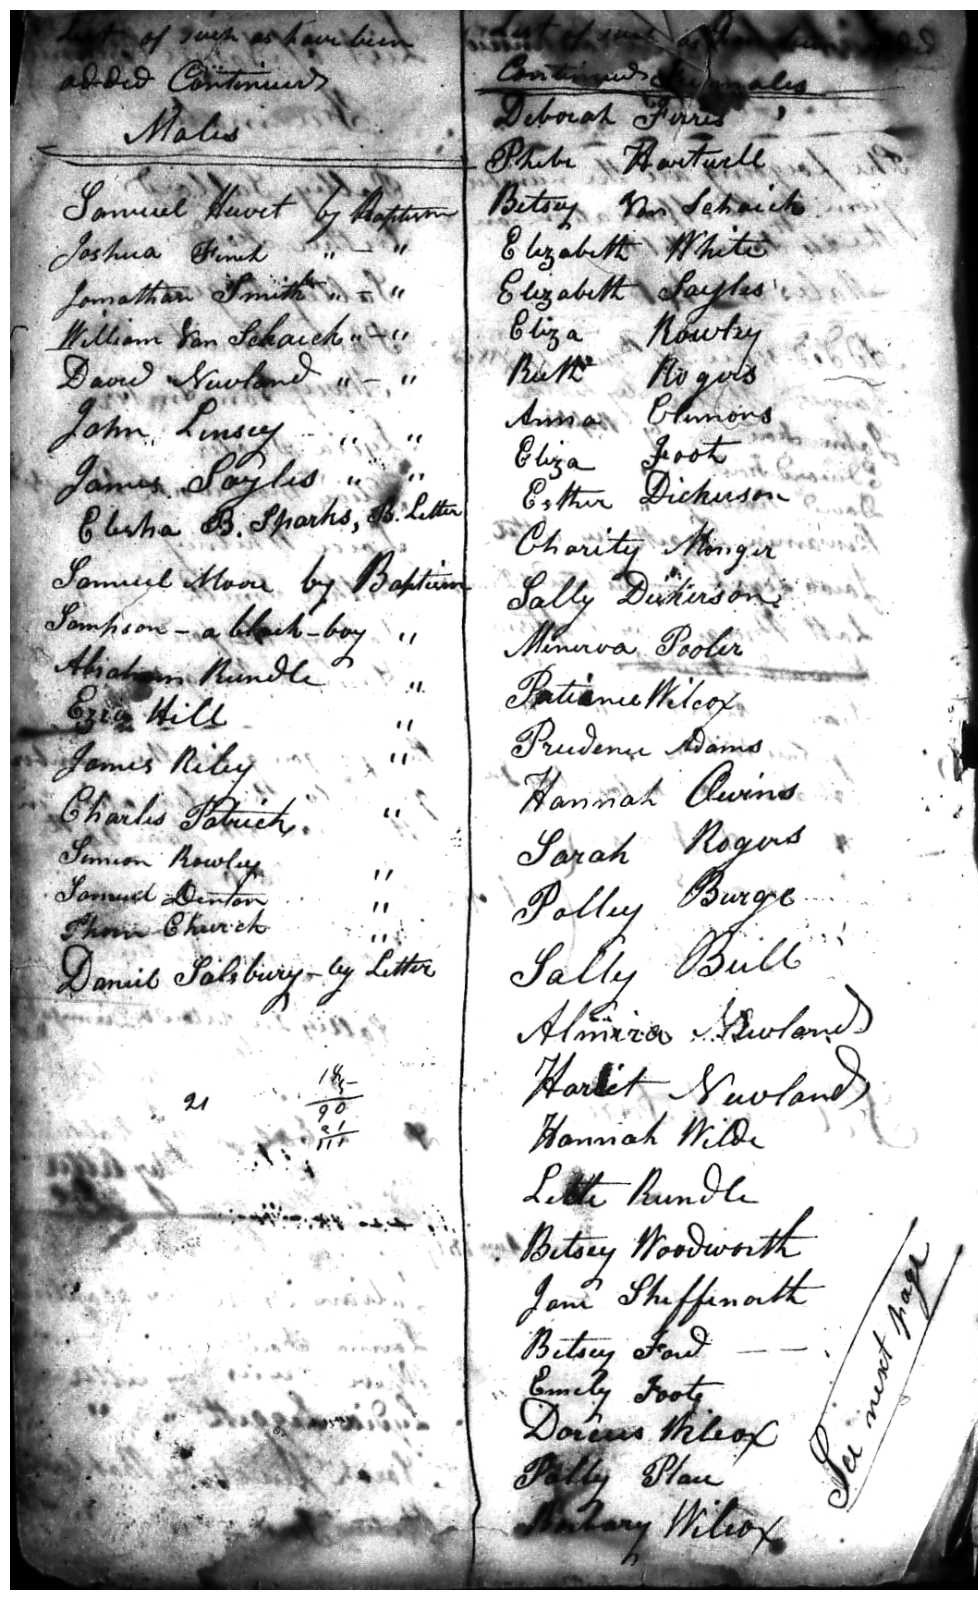 List of such as have been
added Continued
Males
Samuel Huvet by Baptism
Joshua Finch " – "
Jonathan Smith " – "
William Van Schaick " – "
David Newland " – "
John Linsey " "
James Sayles " "
Elesha B. Sparks, B. Letter
Samuel Moore by Baptism
Sampson – a black – boy "
Abraham Rundle "
Ezra Hill "
James Riley "
Charles Patrick "
Simeon Rowley "
Samuel Denton "
Church "
Daniel Salsbury – by Letter
21
90
21
111
List of such as
Continued Females
Deborah Ferris
Phebe Hartwell
Betsey Van Schaick
Elizabeth White
Elizabeth Sayles
Eliza Rowley
Ruth Rogers
Anna Clemons
Eliza Foot
Esther Dickerson
Charity Monger
Sally Dickerson
Minerva Pooler
Patience Wilcox
Prudence Adams
Hannah Owins
Sarah Rogers
Polley Burge
Sally Bull
Almira Newland
Hariet Newland
Hannah Wilde
Lette Rundle
Betsey Woodworth
Jane Sheffenorth
Betsey Ford
Emely Foote
Dorcus Wilcox
Polly Place
Barbary Wilcox
See next page